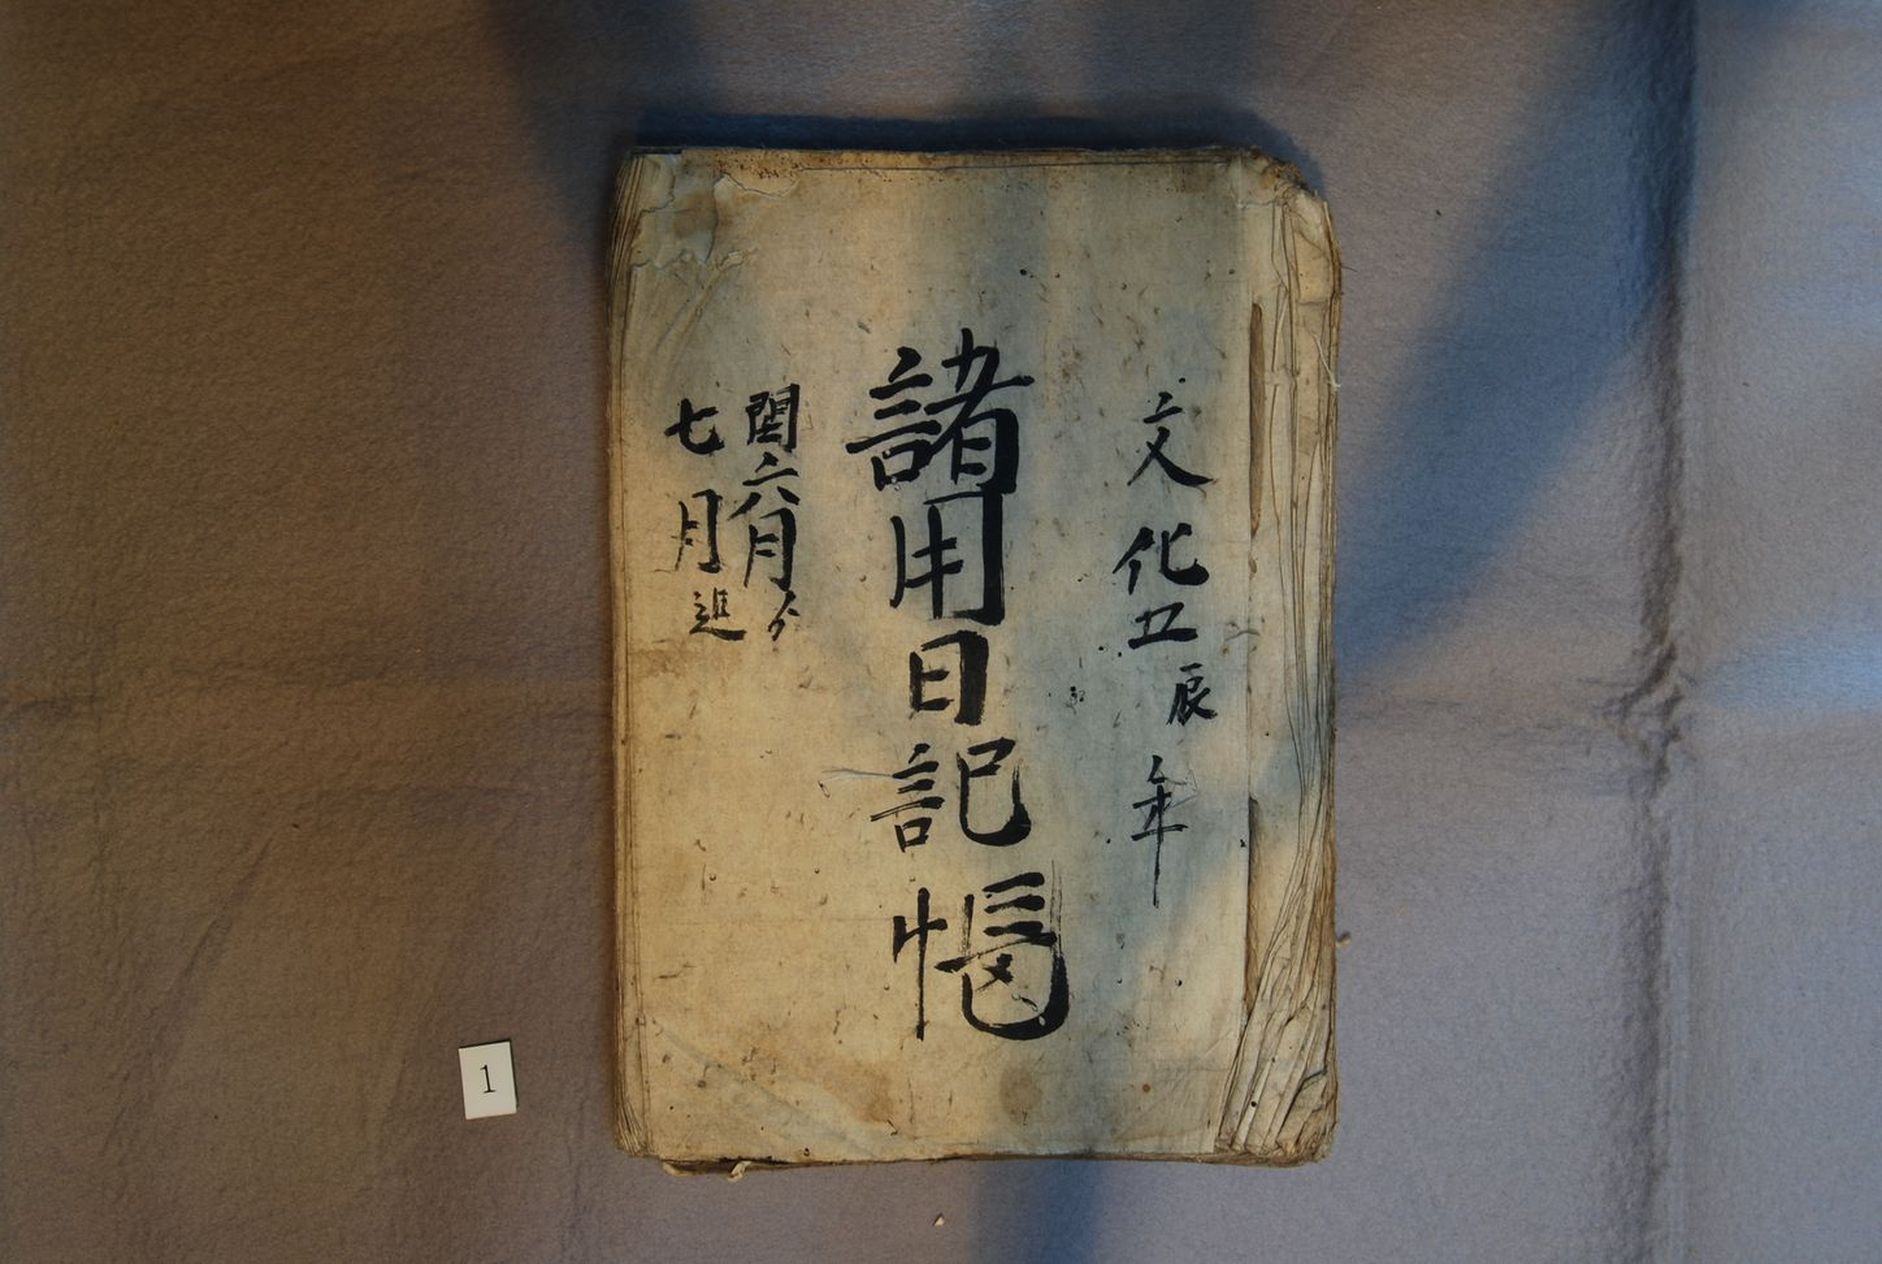 文化五辰年
諸用日記帳
閏六月ゟ
七月迄
1